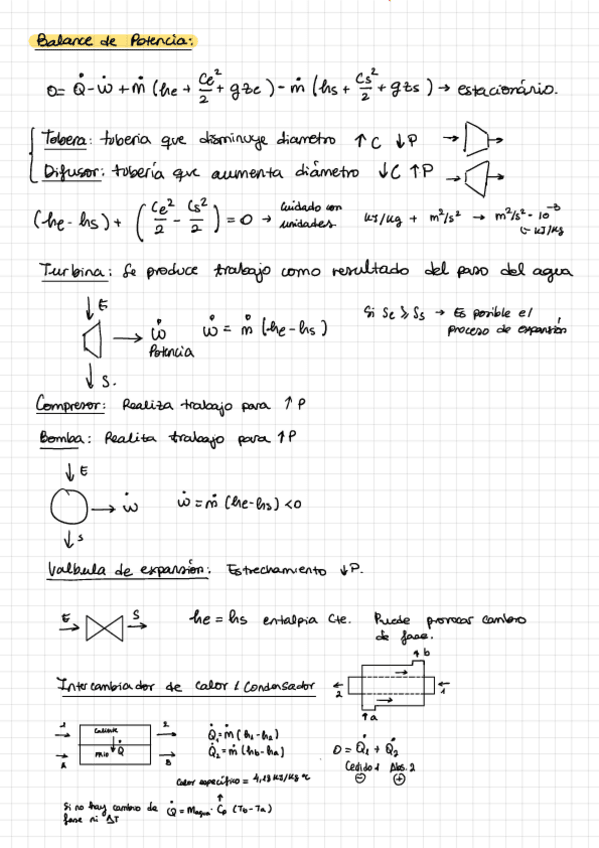 Balance de Potencia:
0 = Q̇ - ẇ + ṁ (he + Ce²/2 + gze) - ṁ (hs + Cs²/2 + gzs) → estacionário.
Tobera: tobería que disminuye diametro ↑C ↓P
Difusor: tobería que aumenta diámetro ↓C ↑P
(he - hs) + (Ce²/2 - Cs²/2) = 0 → Cuidado con unidades kJ/kg + m²/s² → m²/s² · 10⁻³
↳ kJ/kg
Turbina: Se produce trabajo como resultado del paso del agua
E
ẇ ẇ = ṁ (he - hs) Si Se ≥ Ss → Es posible el
Potencia proceso de expansión
S.
Compresor: Realiza trabajo para ↑P
Bomba: Realita trabajo para ↑P
E
ẇ ẇ = ṁ (he - hs) < 0
S
Valbula de expansión: Estrechamiento ↓P.
E S he = hs entalpia Cte. Puede provocar cambio
de fase.
b
Intercambiador de Calor / Condensador
2 1
a
1 Caliente 2 Q̇1 = ṁ (h1 - h2)
A Frio Q̇ B Q̇2 = ṁ (hb - ha) 0 = Q̇1 + Q̇2
Cedido 1 Abs. 2
⊖ ⊕
Calor especifico = 4,18 kJ/kg ºC
Si no hay cambio de fase ni ΔT Q̇ = Magua · Cp (Tb - Ta)